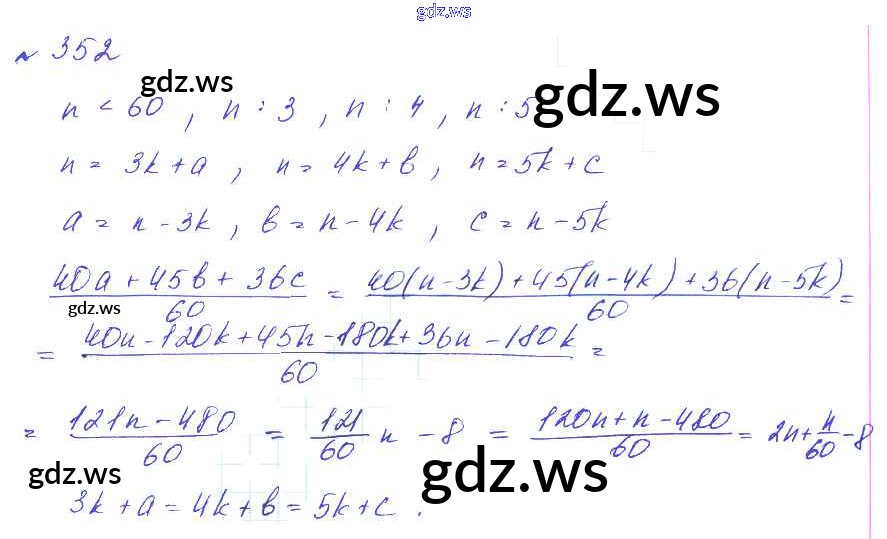 gdz.ws
№ 352
gdz.ws gdz.ws
n < 60 , n : 3 , n : 4 , n : 5
n = 3k + a , n = 4k + b , n = 5k + c
a = n - 3k , b = n - 4k , c = n - 5k
(40a + 45b + 36c)/60 = (40(n - 3k) + 45(n - 4k) + 36(n - 5k))/60 =
gdz.ws
= (40n - 120k + 45n - 180k + 36n - 180k)/60 =
= (121n - 480)/60 = 121/60 n - 8 = (120n + n - 480)/60 = 2n + n/60 - 8
gdz.ws gdz.ws
3k + a = 4k + b = 5k + c .